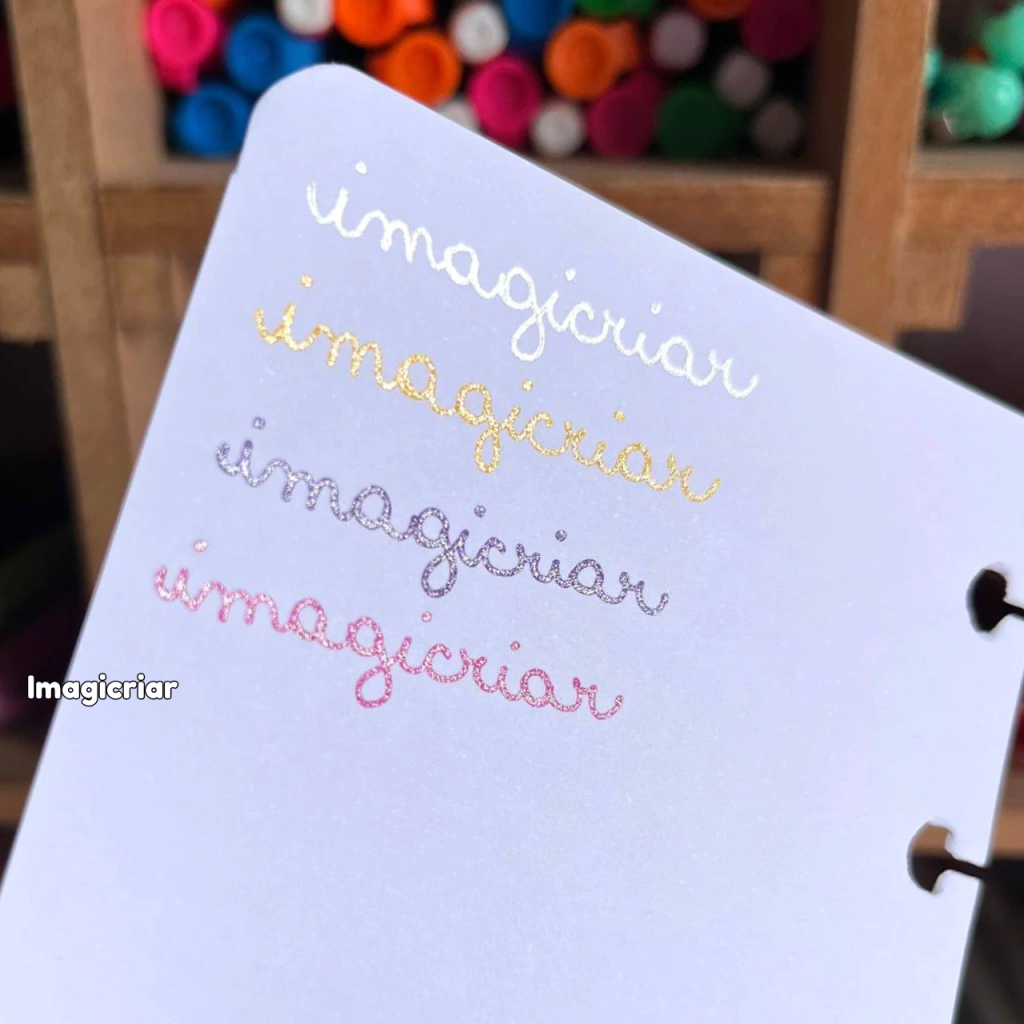 imagicriar
imagicriar
imagicriar
imagicriar
Imagicriar